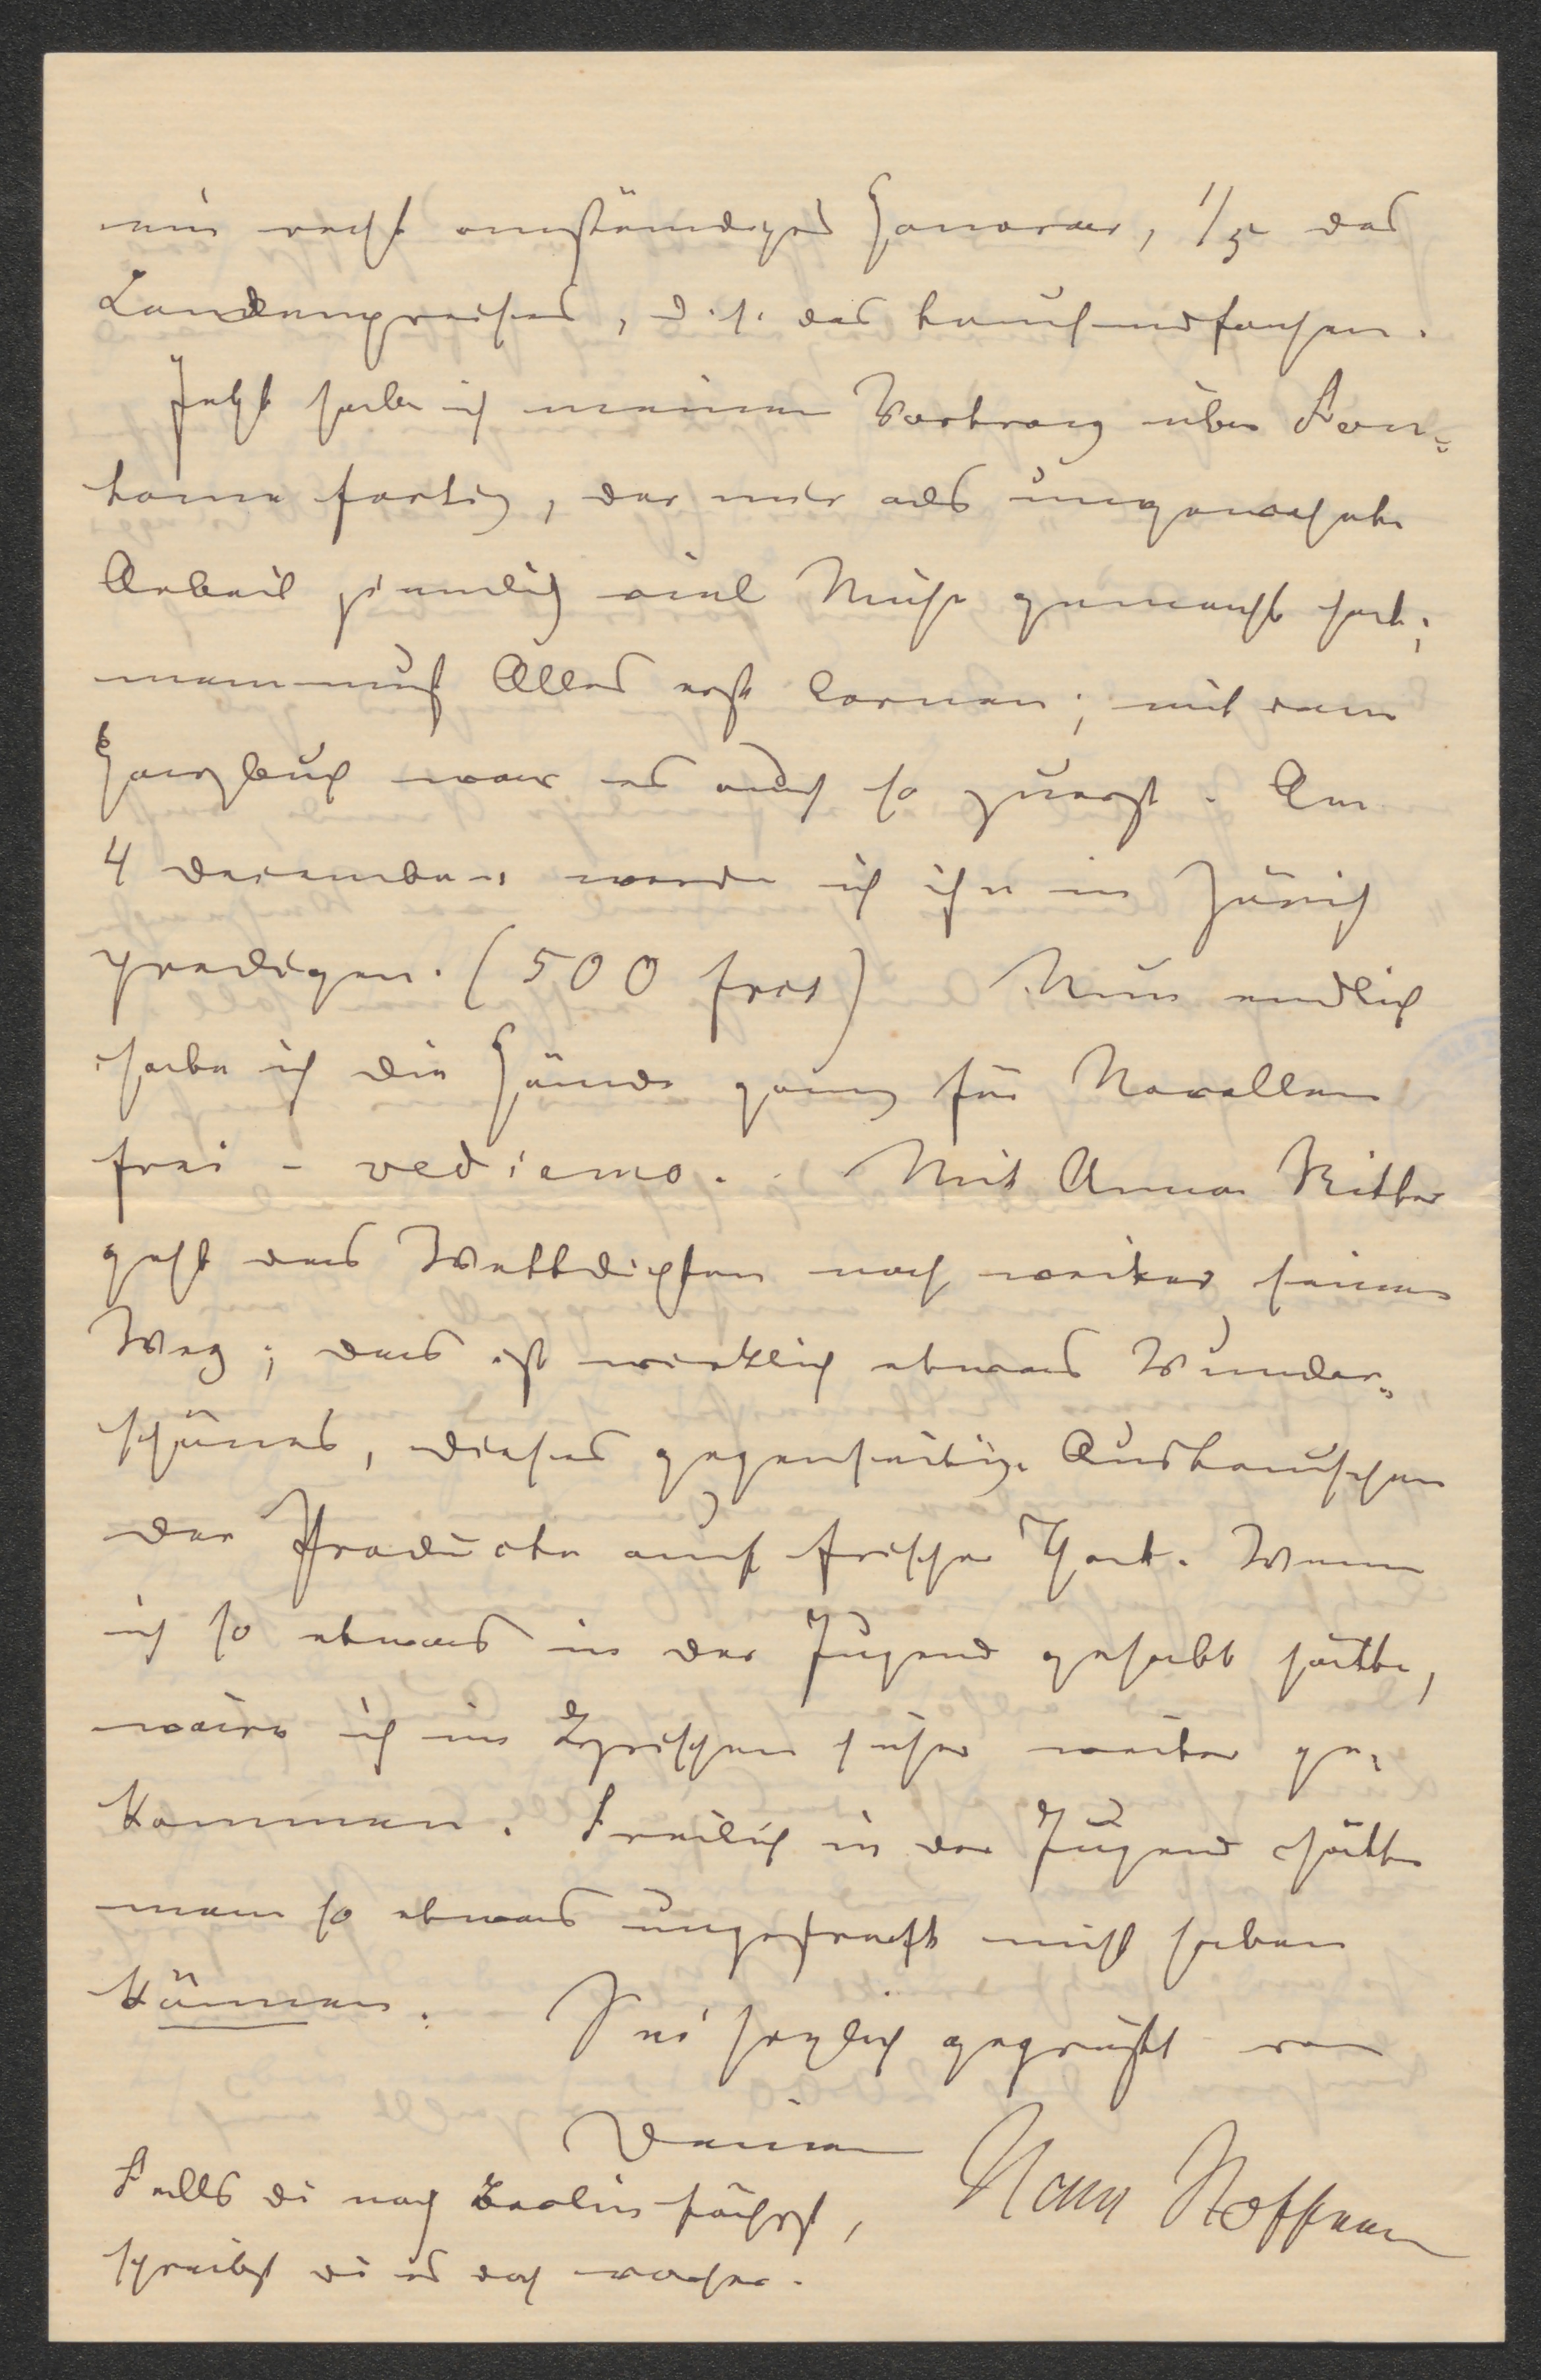 ein recht anständiges Honorar, 1/5 des
Landenpreises, d. h. des tausendfachen.
Jetzt habe ich meinen Vortrag über Fon-
tane fertig, der mir als ungewohnte
Arbeit ziemlich viel Mühe gemacht hat;
man muß Alles erst lernen; mit dem
Harzbuch war es auch so zuerst. Am
4 December werde ich ihn in Zürich
predigen. (500 frcs) Nun endlich
habe ich die Hände ganz für Novellen
frei - vediamo. Mit Anna Ritter
geht das Wettdichten noch weiter seinen
Weg; das ist wirklich etwas Wunder-
schönes, dieses gegenseitige Austauschen
der Producte auf frischer That. Wenn
ich so etwas in der Jugend gehabt hätte,
wäre ich im Lyrischen sicher weiter ge-
kommen. Freilich in der Jugend hätte
man so etwas ungestraft nicht haben
können. Sei herzlich gegrüßt von
Deinem Hans Hoffmann
Falls du nach Berlin fährst,
schreibst du es doch vorher.